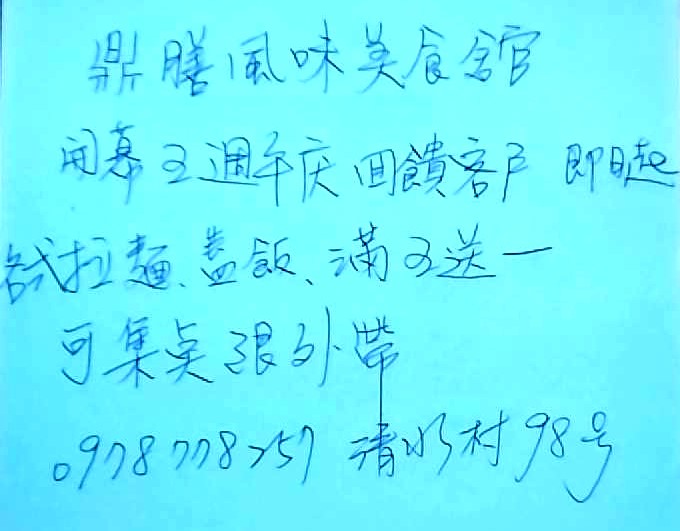 鼎膳風味美食館
開幕五週年庆回饋客戶即日起
各式拉麵、盖飯、滿五送一
可集点限外帶
0978778257 清水村98号